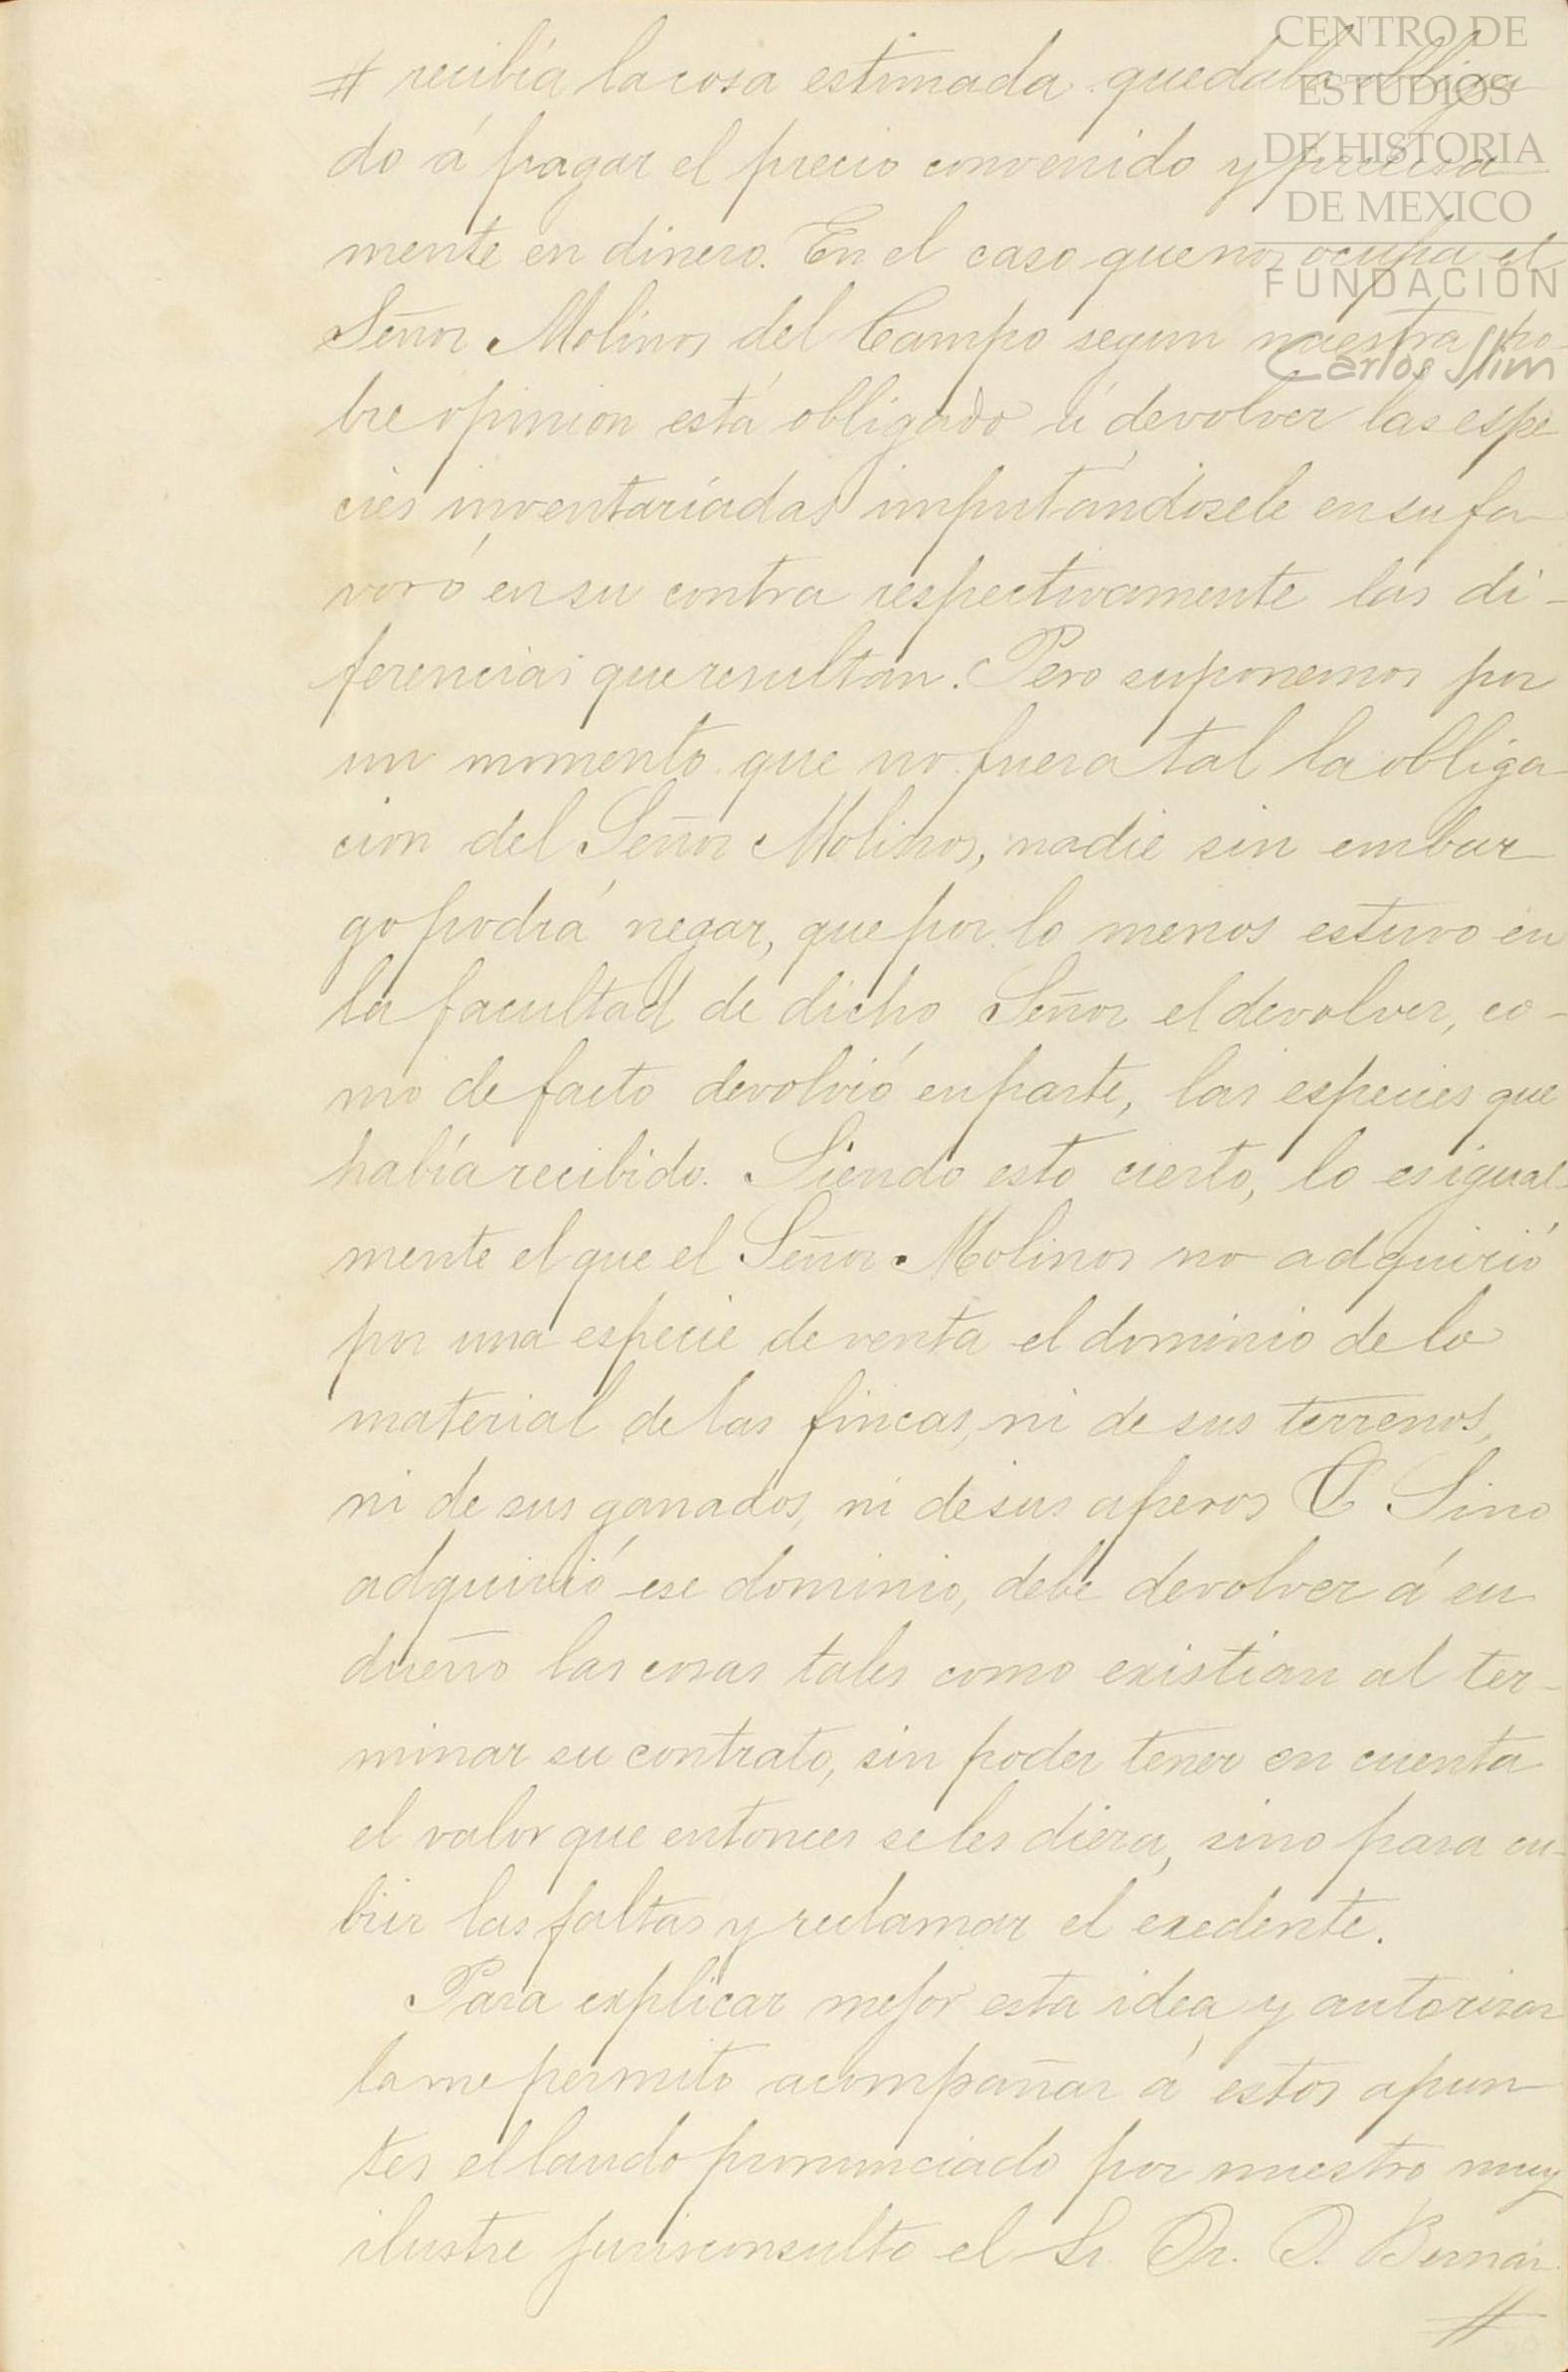 CENTRO DE
ESTUDIOS
DE HISTORIA
DE MEXICO
FUNDACIÓN
Carlos Slim
# recibía la cosa estimada quedaba obliga
do á pagar el precio convenido y precisa
mente en dinero. En el caso que nos ocupa el
Señor Molinos del Campo segun nuestra po-
bre opinion está obligado á devolver las espe
cies inventariadas imputándosele en su fa-
vor ó en su contra respectivamente las di-
ferencias que resultan. Pero suponemos por
un momento que no fuera tal la obliga
cion del Señor Molinos, nadie sin embar-
go podrá negar, que por lo menos estuvo en
la facultad de dicho Señor el devolver, co-
mo de facto devolvió en parte, las especies que
había recibido. Siendo esto cierto, lo es igual-
mente el que el Señor Molinos no adquirió
por una especie de venta el dominio de lo
material de las fincas, ni de sus terrenos,
ni de sus ganados, ni de sus aperos & Sino
adquirió ese dominio, debe devolver á su
dueño las cosas tales como existian al ter-
minar su contrato, sin poder tener en cuenta
el valor que entonces se les diera, sino para cu-
brir las faltas y reclamar el exedente.
Para explicar mejor esta idea y autorizar
la me permito acompañar á estos apun-
tes el laudo pronunciado por nuestro muy
ilustre jurisconsulto el Sr. Dr. D. Bernar
#